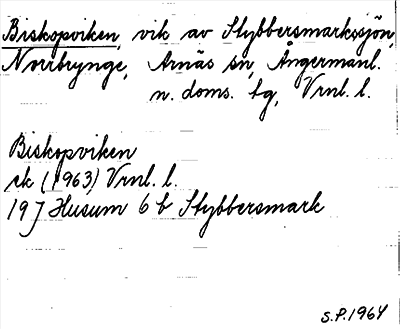 Biskopviken, vik av Stybbersmarkssjön,
Norrbynge, Arnäs sn, Ångermanl.
n. doms. tg, Vrnl. l.
Biskopviken
ek (1963) Vrnl. l.
19 J Husum 6 b Stybbersmark
S.P. 1964